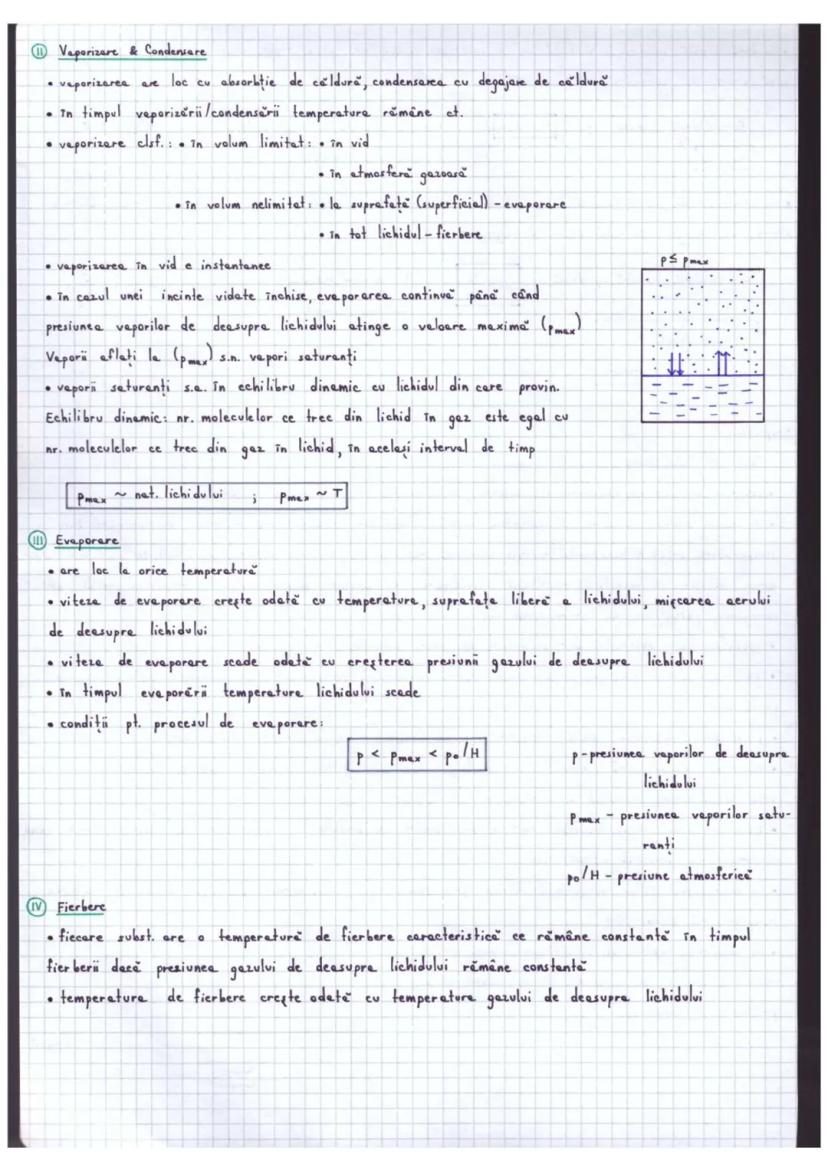 II Vaporizare & Condensare
• vaporizarea are loc cu absorbție de căldură, condensarea cu degajare de căldură
• în timpul vaporizării/condensării temperatura rămâne ct.
• vaporizare clsf.: • în volum limitat: • în vid
• în atmosferă gazoasă
• în volum nelimitat: • la suprafață (superficial) - evaporare
• în tot lichidul - fierbere
• vaporizarea în vid e instantanee
p ≤ pmax
• în cazul unei incinte vidate închise, evaporarea continuă până când
presiunea vaporilor de deasupra lichidului atinge o valoare maximă (pmax)
Vaporii aflați la (pmax) s.n. vapori saturanți
• vaporii saturanți s.a. în echilibru dinamic cu lichidul din care provin.
Echilibru dinamic: nr. moleculelor ce trec din lichid în gaz este egal cu
nr. moleculelor ce trec din gaz în lichid, în același interval de timp
pmax ~ nat. lichidului ; pmax ~ T
III Evaporare
• are loc la orice temperatură
• viteza de evaporare crește odată cu temperatura, suprafața liberă a lichidului, mișcarea aerului
de deasupra lichidului
• viteza de evaporare scade odată cu creșterea presiunii gazului de deasupra lichidului
• în timpul evaporării temperatura lichidului scade
• condiții pt. procesul de evaporare:
p < pmax < p0/H
p - presiunea vaporilor de deasupra
lichidului
pmax - presiunea vaporilor satu-
ranți
p0/H - presiune atmosferică
IV Fierbere
• fiecare subst. are o temperatură de fierbere caracteristică ce rămâne constantă în timpul
fierberii dacă presiunea gazului de deasupra lichidului rămâne constantă
• temperatura de fierbere crește odată cu temperatura gazului de deasupra lichidului